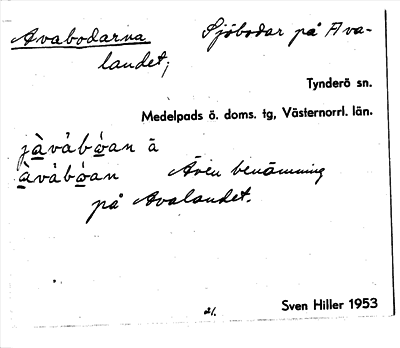 Avabodarna Sjöbodar på Ava-
landet;
Tynderö sn.
Medelpads ö. doms. tg, Västernorrl. län.
jàvåbωan ā
àvåbωan Även benämning
på Avalandet.
21. Sven Hiller 1953